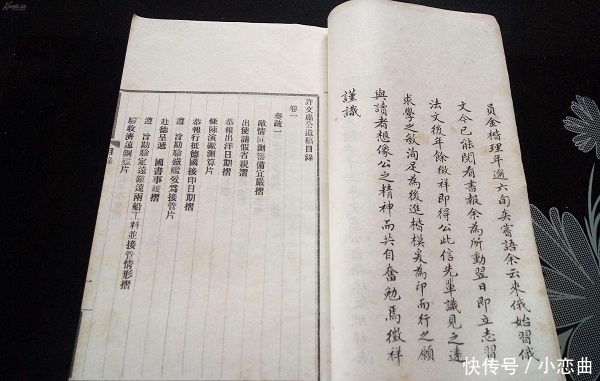 員金楷理年過六旬矣嘗語余云來俄始習俄
文今已能閱看書報余為所動翌日即立志習
法文後年餘徵祥即得公此信先輩識見之遠
求學之敏洵足為後進楷模爰為印而行之願
與讀者想像公之精神而共自奮勉焉徵祥
謹識
許文肅公遺稿目錄
卷一
奏疏一
敵情叵測籌備宜嚴摺
出使請假省親摺
恭報出洋日期摺
條陳演礮測算片
恭報行抵德國接印日期摺
遵 旨勘驗鐵艦妥為接管片
赴德呈遞 國書事竣摺
遵 旨勘驗定遠鎮遠兩船工料並接管情形摺
驗收濟遠鋼艦片
目錄
快传号／小恋曲